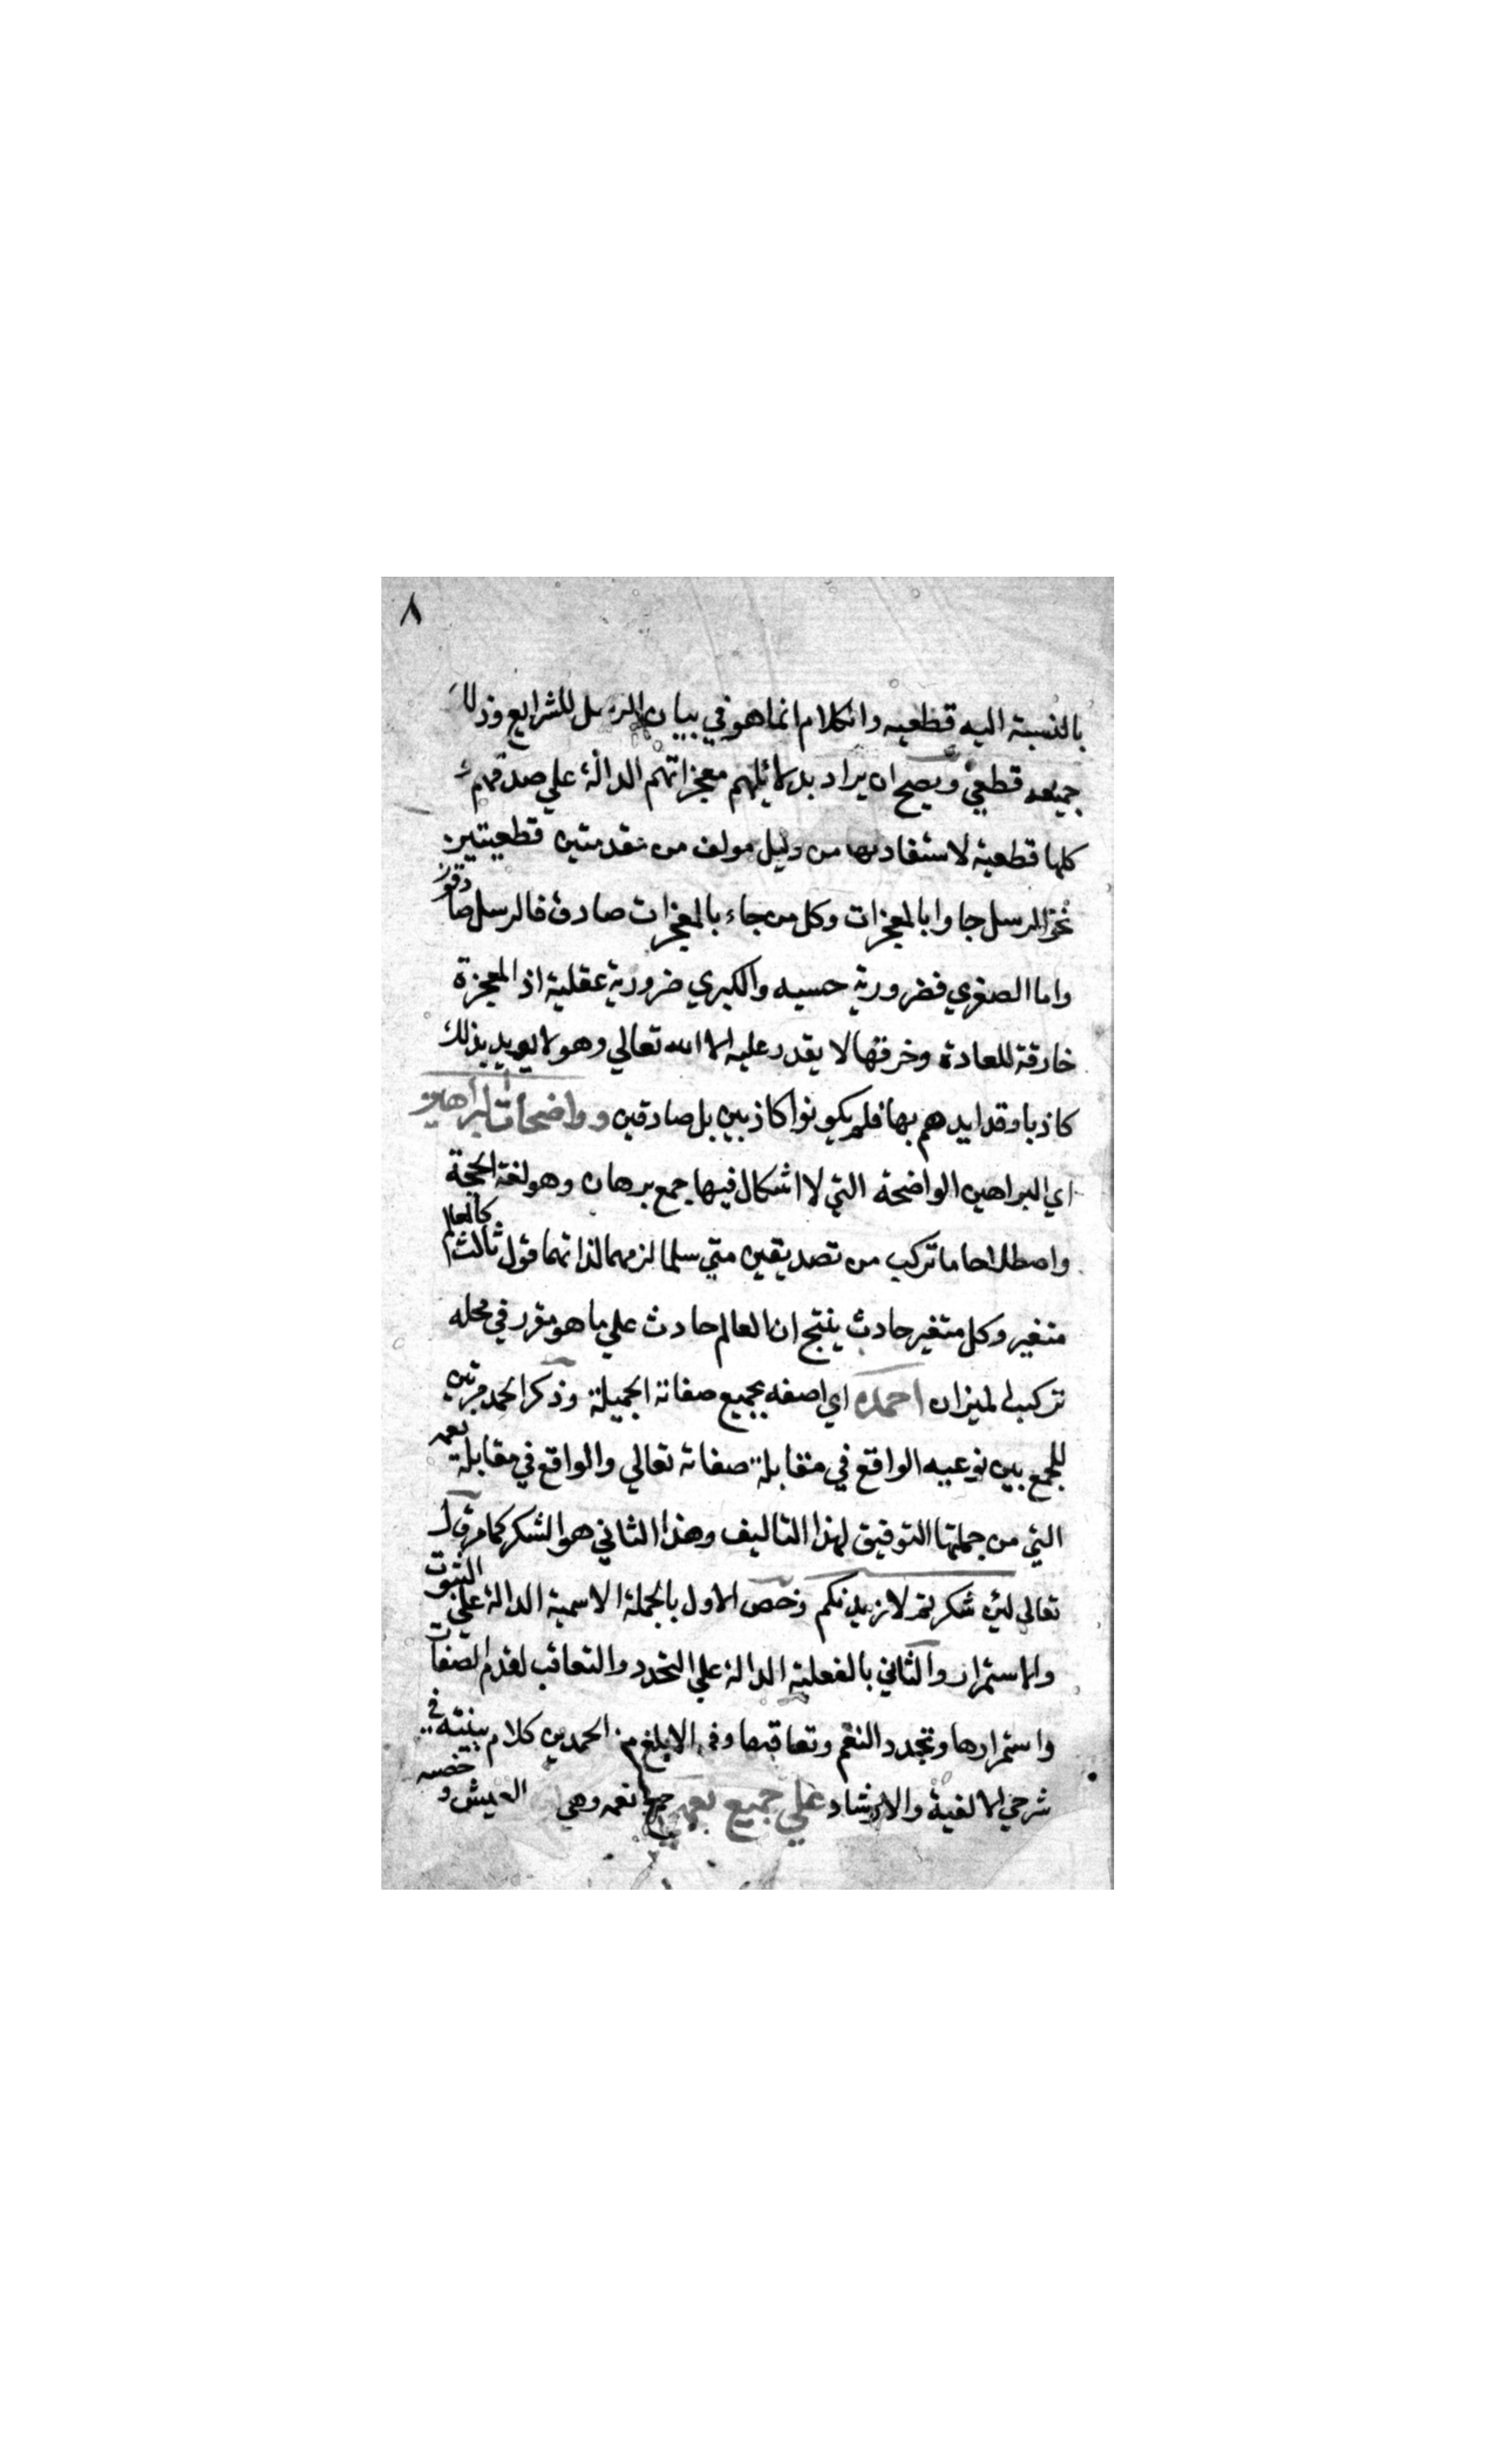 ٨
بالنسبة اليه قطعيه والكلام انما هو في بيان الرسل للشرايع وذلك
جميعه قطعي ويصح ان يراد بدلائلهم معجزاتهم الدالة علي صدقهم
كلها قطعية لاستفادتها من دليل مولف من مقدمتين قطعيتين
نحو الرسل جاوا بالمعجزات وكل من جاء بالمعجزات صادق فالرسل صادقون
واما الصغري فضرورية حسيه والكبري ضرورية عقلية اذ المعجزة
خارقة للعادة وخرقها لا يقدر عليه الا الله تعالي وهو لا يويد بذلك
كاذبا وقد ايدهم بها فلم يكونوا كاذبين بل صادقين و واضحات البراهين
اي البراهين الواضحة التي لا اشكال فيها جمع برهان وهو لغة الحجة
واصطلاحا ما تركب من تصديقين متي سلما لزمهما لذاتهما قول ثالث كالعالم
متغير وكل متغير حادث ينتج ان العالم حادث علي ما هو مقرر في محله
تركيب الميزان احمده اي اصفه بجميع صفاته الجميلة وذكر الحمد مرتين
للجمع بين نوعيه الواقع في مقابلة صفاته تعالي والواقع في مقابلة نعمه
التي من جملتها التوفيق لهذا التاليف وهذا الثاني هو الشكر كما مر قال
تعالي لئن شكرتم لازيدنكم وخص الاول بالجملة الاسمية الدالة علي الثبوت
والاستمرار والثاني بالفعلية الدالة علي التجدد والتعاقب لقدم الصفات
واستمرارها وتجدد النعم وتعاقبها وفي الابلغ من الحمدين كلام بينته في
شرحي الالفية والارشاد علي جميع نعمه جمع نعمه وهي العيش و خصه